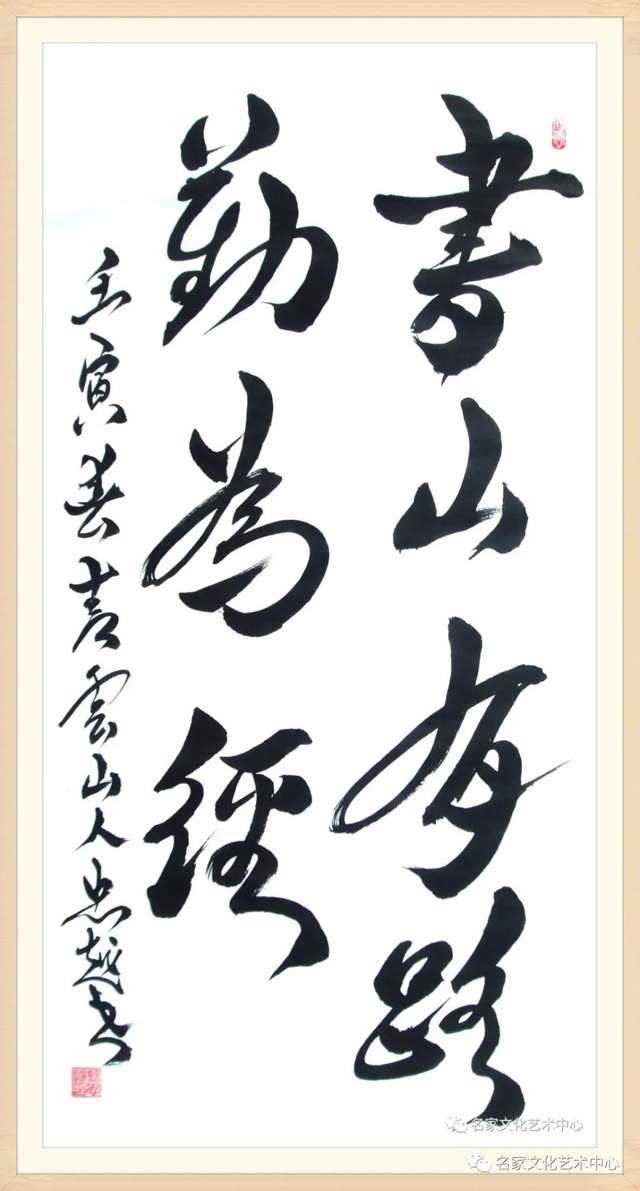 書山有路
勤為經
壬寅春青雲山人忠越書
名家文化艺术中心
名家文化艺术中心